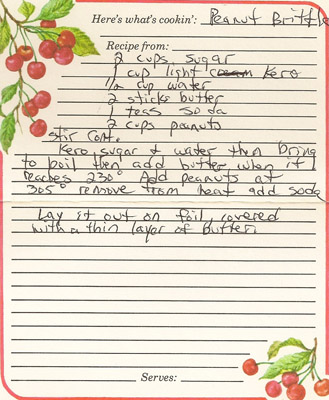 Here's what's cookin': Peanut Brittle
Recipe from:
2 cups sugar
1 cup light Kero
1/2 cup water
2 sticks butter
1 teas soda
2 cups peanuts
stir cont.
Kero, sugar & water then bring
to boil then add butter when it
reaches 230° Add peanuts at
305° remove from heat add soda
Lay it out on foil, covered
with a thin layer of butter.
Serves: